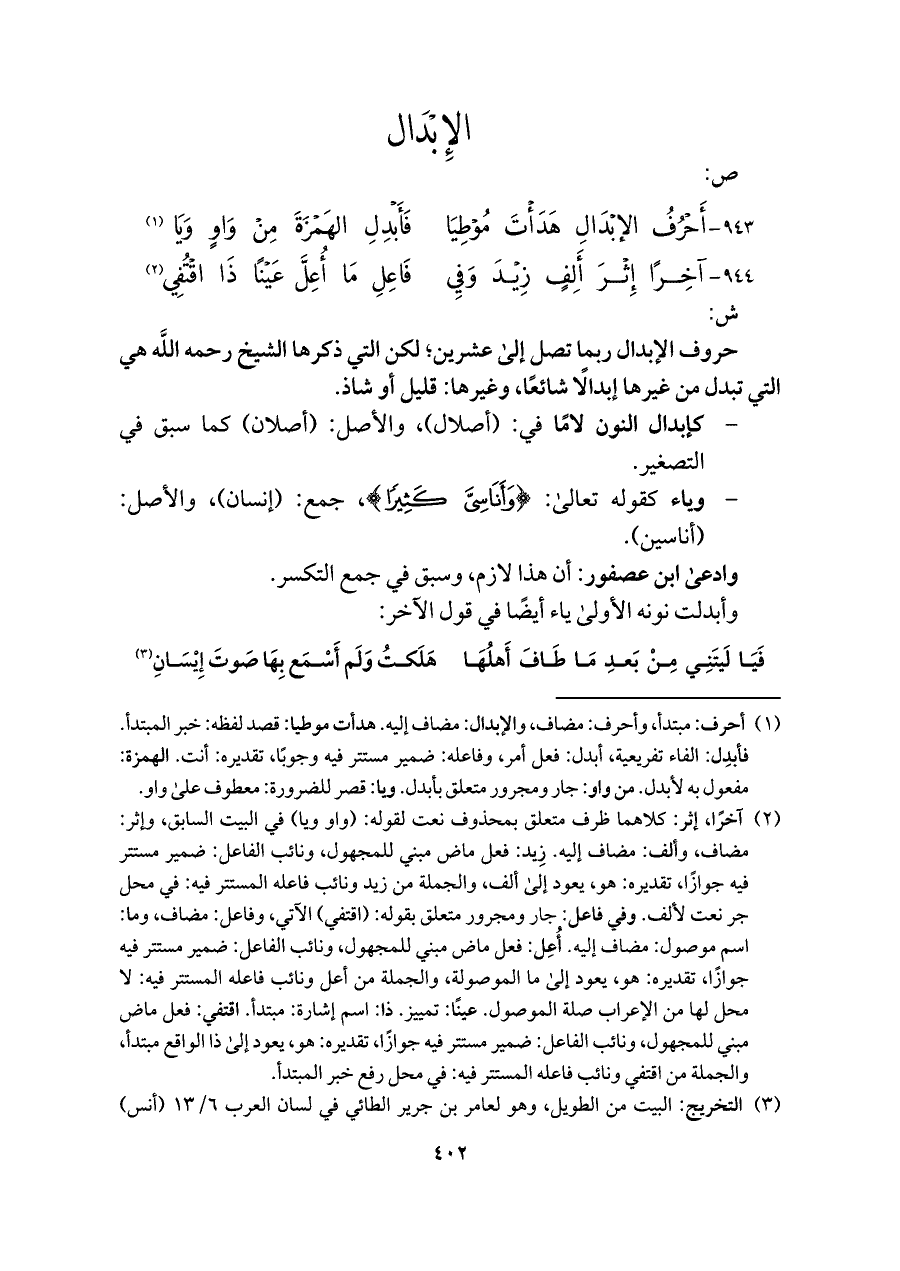 الإِبْدَال
ص:
٩٤٣- أَحْرُفُ الإبْدَالِ هَدَأْتَ مُوْطِيَا فَأَبْدِلِ الهَمْزَةَ مِنْ وَاوٍ وَيَا (١)
٩٤٤- آخِرًا إِثْرَ أَلِفٍ زِيْدَ وَفِي فَاعِلِ مَا أُعِلَّ عَيْنًا ذَا اقْتُفِي(٢)
ش:
حروف الإبدال ربما تصل إلىٰ عشرين؛ لكن التي ذكرها الشيخ رحمه اللَّه هي
التي تبدل من غيرها إبدالًا شائعًا، وغيرها: قليل أو شاذ.
- كإبدال النون لامًا في: (أصلال)، والأصل: (أصلان) كما سبق في
التصغير.
- وياء كقوله تعالىٰ: ﴿وَأَنَاسِيَّ كَثِيرًا﴾، جمع: (إنسان)، والأصل:
(أناسين).
وادعىٰ ابن عصفور: أن هذا لازم، وسبق في جمع التكسر.
وأبدلت نونه الأولىٰ ياء أيضًا في قول الآخر:
فَيَا لَيتَنِي مِنْ بَعدِ مَا طَافَ أَهلُهَا هَلَكتُ وَلَم أَسْمَع بِهَا صَوتَ إِيْسَانِ(٣)
(١) أحرف: مبتدأ، وأحرف: مضاف، والإبدال: مضاف إليه. هدأت موطيا: قصد لفظه: خبر المبتدأ.
فأبدِل: الفاء تفريعية، أبدل: فعل أمر، وفاعله: ضمير مستتر فيه وجوبًا، تقديره: أنت. الهمزة:
مفعول به لأبدل. من واو: جار ومجرور متعلق بأبدل. ويا: قصر للضرورة: معطوف علىٰ واو.
(٢) آخرًا، إثر: كلاهما ظرف متعلق بمحذوف نعت لقوله: (واو ويا) في البيت السابق، وإثر:
مضاف، وألف: مضاف إليه. زِيد: فعل ماض مبني للمجهول، ونائب الفاعل: ضمير مستتر
فيه جوازًا، تقديره: هو، يعود إلىٰ ألف، والجملة من زيد ونائب فاعله المستتر فيه: في محل
جر نعت لألف. وفي فاعل: جار ومجرور متعلق بقوله: (اقتفي) الآتي، وفاعل: مضاف، وما:
اسم موصول: مضاف إليه. أُعِل: فعل ماض مبني للمجهول، ونائب الفاعل: ضمير مستتر فيه
جوازًا، تقديره: هو، يعود إلىٰ ما الموصولة، والجملة من أعل ونائب فاعله المستتر فيه: لا
محل لها من الإعراب صلة الموصول. عينًا: تمييز. ذا: اسم إشارة: مبتدأ. اقتفي: فعل ماض
مبني للمجهول، ونائب الفاعل: ضمير مستتر فيه جوازًا، تقديره: هو، يعود إلىٰ ذا الواقع مبتدأ،
والجملة من اقتفي ونائب فاعله المستتر فيه: في محل رفع خبر المبتدأ.
(٣) التخريج: البيت من الطويل، وهو لعامر بن جرير الطائي في لسان العرب ٦/ ١٣ (أنس)
٤٠٢